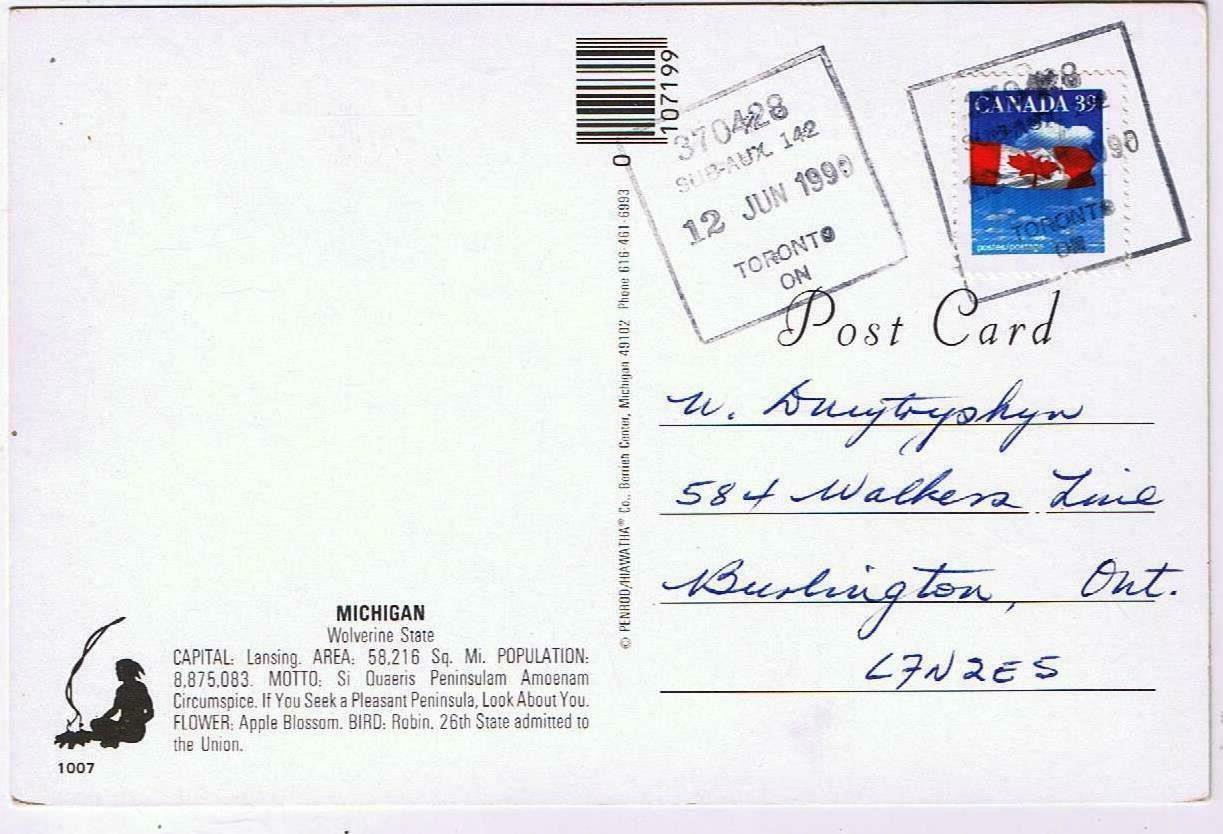 107199
0
370428
SUB-AUX. 142
12 JUN 1990
TORONTO
ON
CANADA 39
postes/postage
1990
TORONTO
ON
Post Card
W. Dmytryshyn
584 Walkers Line
Burlington, Ont.
L7N2E5
© PENROD/HIAWATHA® Co., Berrien Center, Michigan 49102 Phone 616-461-6993
MICHIGAN
Wolverine State
CAPITAL: Lansing. AREA: 58,216 Sq. Mi. POPULATION:
8,875,083. MOTTO: Si Quaeris Peninsulam Amoenam
Circumspice. If You Seek a Pleasant Peninsula, Look About You.
FLOWER: Apple Blossom. BIRD: Robin. 26th State admitted to
the Union.
1007